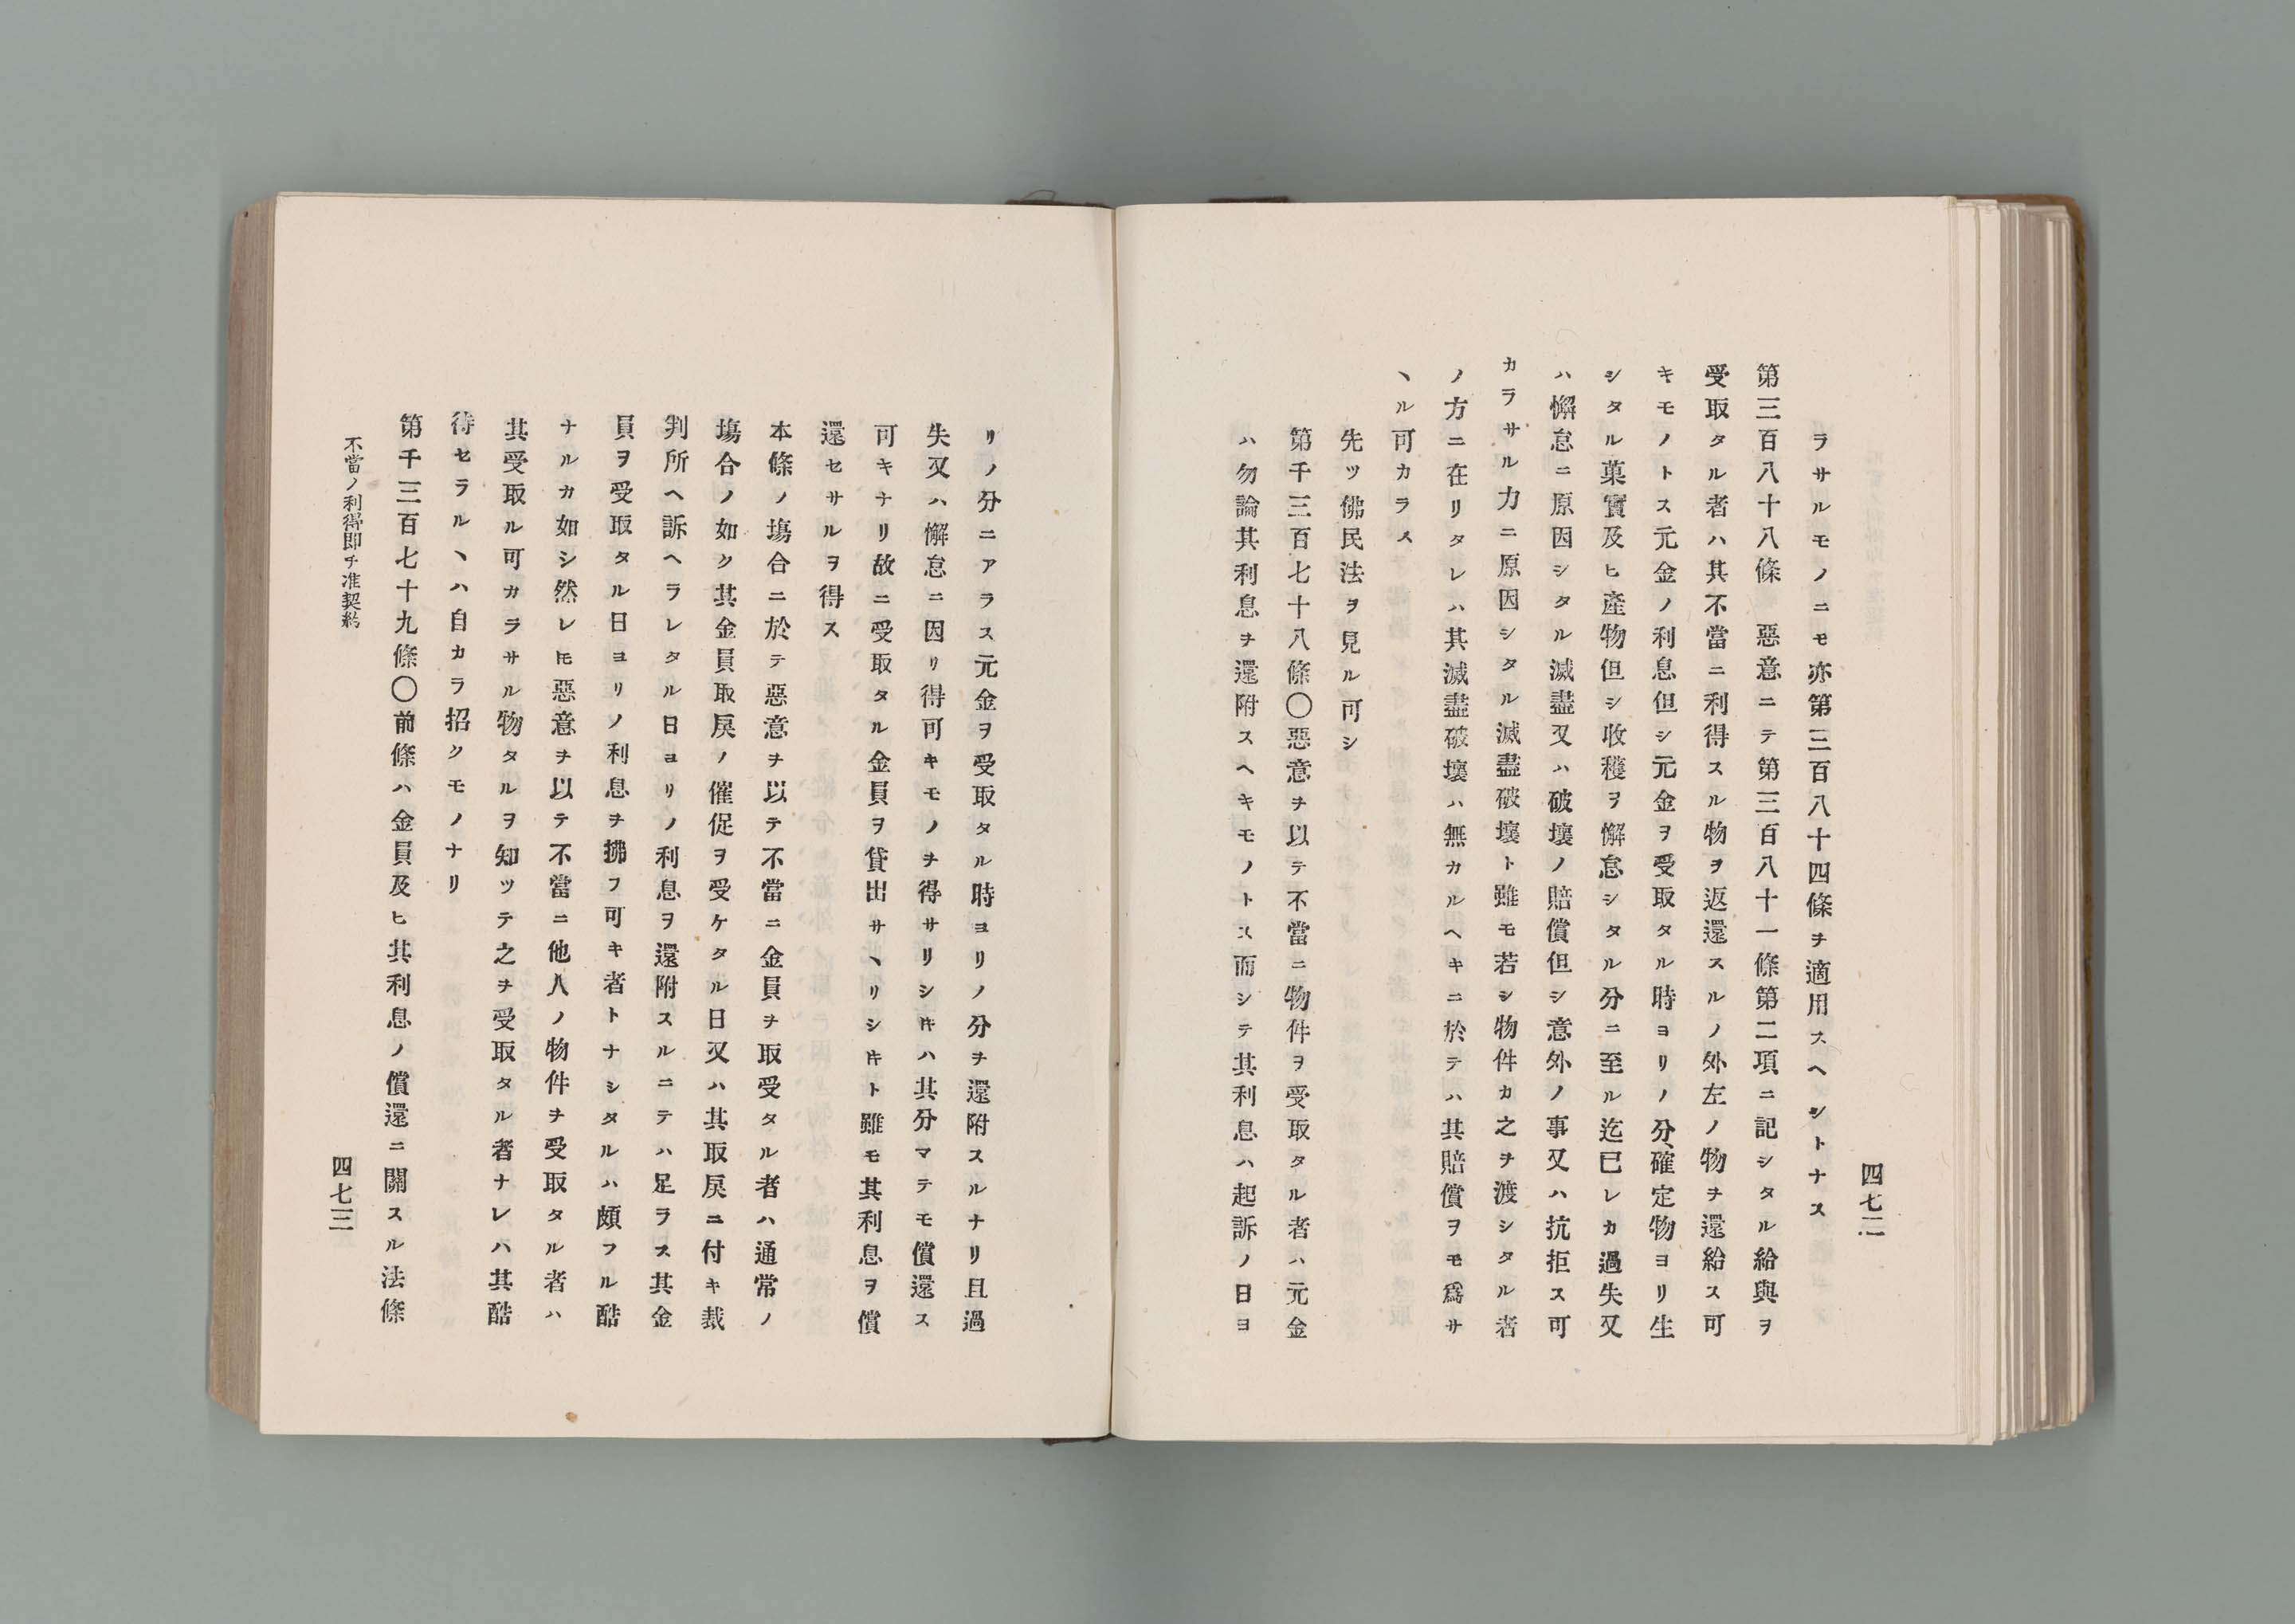 四七二
ラサルモノニモ亦第三百八十四條ヲ適用スヘシトナス
第三百八十八條　惡意ニテ第三百八十一條第二項ニ記シタル給與ヲ
受取タル者ハ其不當ニ利得スル物ヲ返還スルノ外左ノ物ヲ還給ス可
キモノトス元金ノ利息但シ元金ヲ受取タル時ヨリノ分、確定物ヨリ生
シタル菓實及ヒ產物但シ收穫ヲ懈怠シタル分ニ至ル迄已レカ過失又
ハ懈怠ニ原因シタル滅盡又ハ破壞ノ賠償但シ意外ノ事又ハ抗拒ス可
カラサル力ニ原因シタル滅盡破壞ト雖モ若シ物件カ之ヲ渡シタル者
ノ方ニ在リタレハ其滅盡破壞ハ無カルヘキニ於テハ其賠償ヲモ爲サ
ヽル可カラス
先ツ佛民法ヲ見ル可シ
第千三百七十八條〇惡意ヲ以テ不當ニ物件ヲ受取タル者ハ元金
ハ勿論其利息ヲ還附スヘキモノトス而シテ其利息ハ起訴ノ日ヨ
リノ分ニアラス元金ヲ受取タル時ヨリノ分ヲ還附スルナリ且過
失又ハ懈怠ニ因リ得可キモノヲ得サリシキハ其分マテモ償還ス
可キナリ故ニ受取タル金員ヲ貸出サヽリシキト雖モ其利息ヲ償
還セサルヲ得ス
本條ノ塲合ニ於テ惡意ヲ以テ不當ニ金員ヲ取受タル者ハ通常ノ
塲合ノ如ク其金員取戾ノ催促ヲ受ケタル日又ハ其取戾ニ付キ裁
判所ヘ訴ヘラレタル日ヨリノ利息ヲ還附スルニテハ足ラス其金
員ヲ受取タル日ヨリノ利息ヲ拂フ可キ者トナシタルハ頗フル酷
ナルカ如シ然レㇳモ惡意ヲ以テ不當ニ他人ノ物件ヲ受取タル者ハ
其受取ル可カラサル物タルヲ知ツテ之ヲ受取タル者ナレハ其酷
待セラルヽハ自カラ招クモノナリ
第千三百七十九條〇前條ハ金員及ヒ其利息ノ償還ニ關スル法條
不當ノ利得即チ准契約
四七三